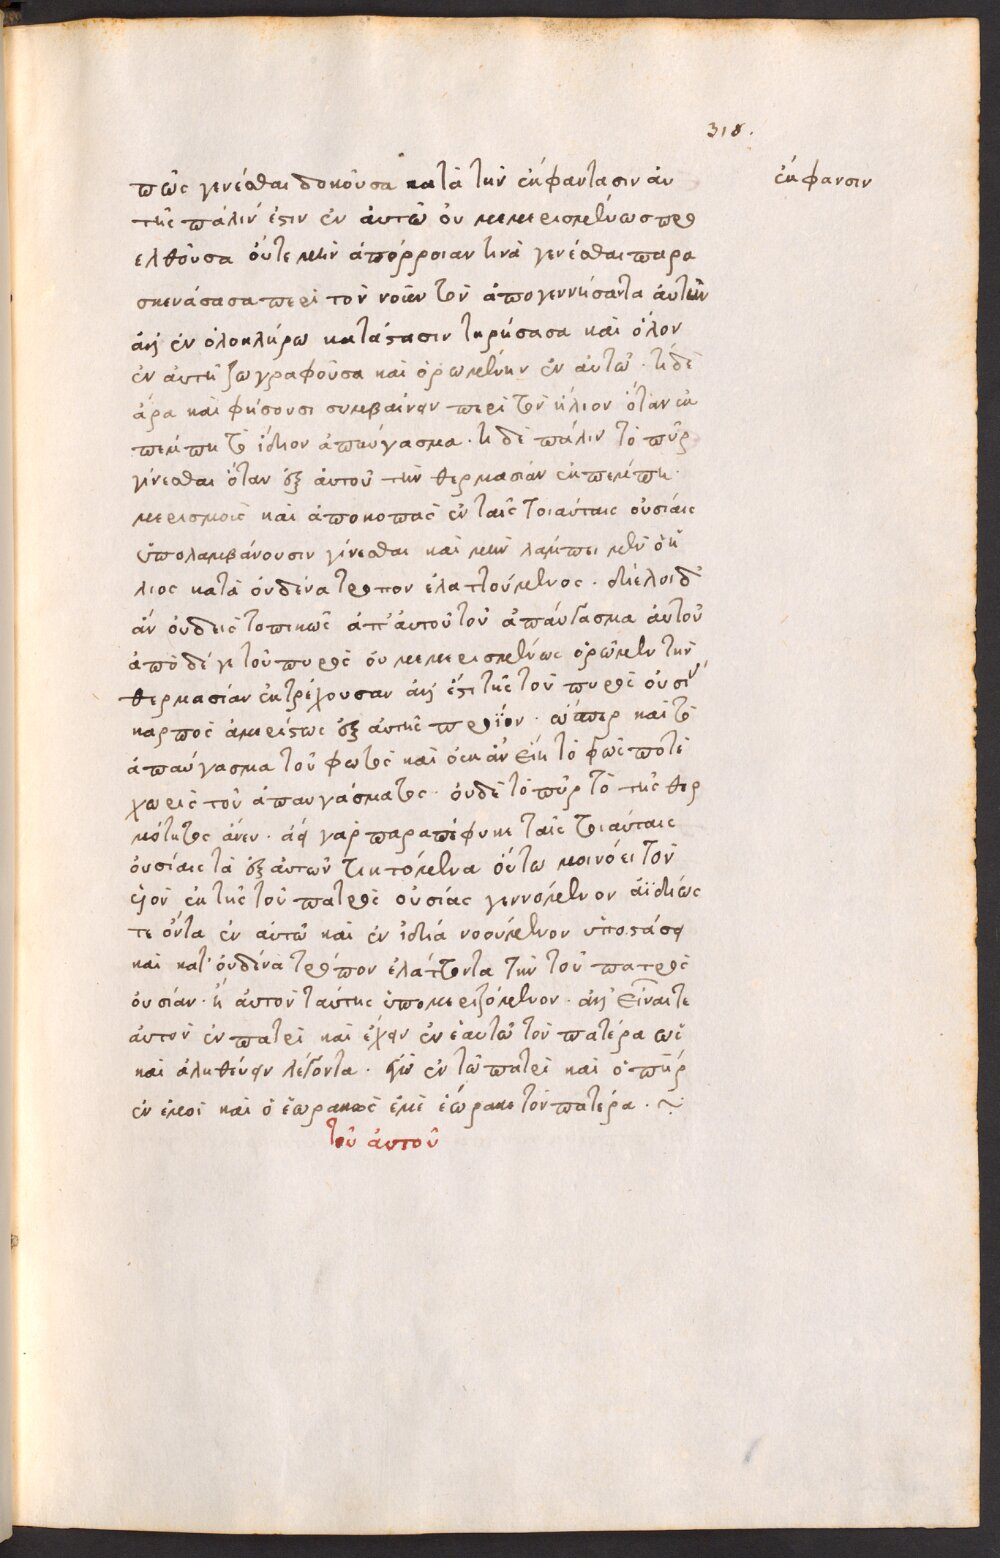 318.
πως γενέσθαι δοκοῦσα κατὰ τὴν ἐκφαντασιν ἀυ
ἐκφανσιν
τῆς πάλιν ἐστιν ἐν ἀυτῶ ὀυ μεμερισμένως προ
ελθοῦσα ὀύτε μὴν ἀπόρροιαν τινὰ γενέσθαι παρα
σκευάσασα περὶ τὸν νοῦν τὸν ἀπογεννήσαντα ἀυτὴν
ἀλλ ἐν ὁλοκλήρω κατάστασιν τηρήσασα καὶ ὅλον
ἐν ἀυτῆ ζωγραφοῦσα καὶ ὁρωμένην ἐν ἀυτῶ. τί δὲ
ἄρα καὶ φήσουσι συμβαίνειν περὶ τὸν ἥλιον ὅταν ἐκ
πέμπη τὸ ἴδιον ἀπαύγασμα. τί δὲ πάλιν τὸ πῦρ
γίνεσθαι ὅταν ἐξ ἀυτοῦ τὴν θερμασίαν ἐκπέμπη.
μερισμοὶς καὶ ἀποκοπὰς ἐν ταῖς τοιάυταις ὀυσίαις
ὑπολαμβάνουσιν γίνεσθαι καὶ μὴν λάμπει μὲν ὁ ἥ
λιος κατὰ ὀυδένα τρόπον ἐλαττούμενος. διέλοι δ'
ἂν ὀυδεὶς τοπικῶς ἀπ' ἀυτοῦ τοῦ ἀπαύγασμα ἀυτοῦ
ἀπὸ δέ γε τοῦ πυρὸς ὀυ μεμερισμένως ὁρῶμεν τὴν
θερμασίαν ἐκτρέχουσαν ἀλλ ἐστὶ τῆς τοῦ πυρὸς ὀυσί
καρπὸς ἀμερίστως ἐξ ἀυτῆς προϊόν. ὥσπερ καὶ τὸ
ἀπαύγασμα τοῦ φωτὸς καὶ ὀυκ ἂν εἴη τὸ φῶς ποτὲ
χωρὶς τοῦ ἀπαυγάσματος. ὀυδὲ τὸ πῦρ τὸ τῆς θερ
μότητος ἄνευ. ἀεὶ γὰρ παραπέφυκε ταῖς τοιάυταις
ὀυσίαις τὰ ἐξ ἀυτῶν τικτόμενα ὀύτω μοι νόει τὸν
υἱὸν ἐκ τῆς τοῦ πατρὸς ὀυσίας γεννόμενον ἀϊδίως
τε ὄντα ἐν αὐτῶ καὶ ἐν ἰδιὰ νοούμενον ὑποστάσει
καὶ κατ' ὀυδένα τρόπον ἐλάττοντα τὴν τοῦ πατρὸς
ὀυσίαν. ἢ ἀυτὸν τάυτης ὑπομεριζόμενον. ἀλλ' εἶναι τε
ἀυτὸν ἐν πατρὶ καὶ ἔχειν ἐν ἑαυτῶ τὸν πατέρα ὡς
καὶ ἀληθέυειν λέγοντα. ἐγὼ ἐν τῶ πατρὶ καὶ ὁ πηρ
ἐν ἐμοὶ καὶ ὁ ἑωρακὼς ἐμὲ ἑώρακε τὸν πατέρα. ~
τοῦ ἀυτοῦ